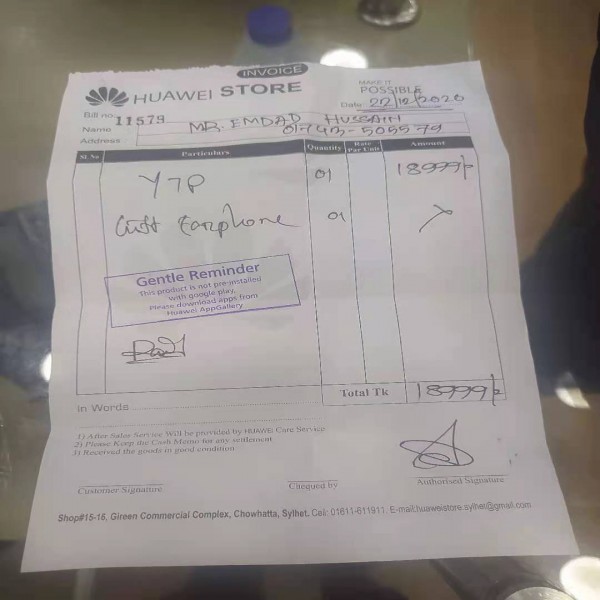 INVOICE
HUAWEI STORE
MAKE IT
POSSIBLE
Bill no 11579
Date 22/12/2020
Name MR. EMDAD HUSSAIN
Address
Sl. No Particulars Quantity Rate Per Unit Amount
Y7P 01 18999/-
Gift Earphone 01
Gentle Reminder
This product is not pre-installed
with google play.
Please download apps from
Huawei AppGallery
Paid
Total Tk 18999/-
In Words
1) After Sales Service Will be provided by HUAWEI Care Service
2) Please Keep the Cash Memo for any settlement
3) Received the goods in good condition
Customer Signature Chequed by Authorised Signature
Shop#15-16, Gireen Commercial Complex, Chowhatta, Sylhet, Cell: 01611-611911, E-mail:huaweistore.sylhet@gmail.com